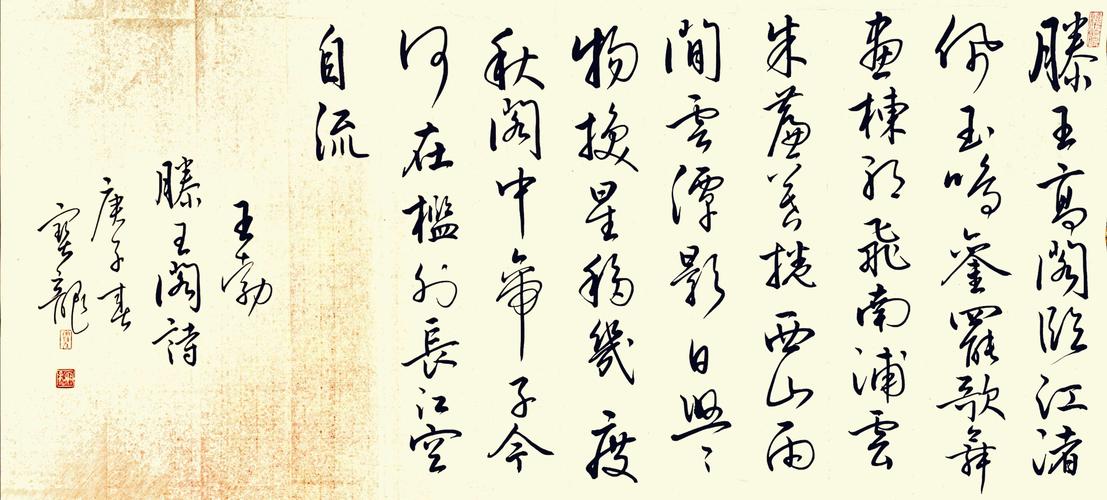 滕王高閣臨江渚
佩玉鳴鑾罷歌舞
畫棟朝飛南浦雲
朱簾暮捲西山雨
閒雲潭影日悠〻
物換星移幾度
秋閣中帝子今
何在檻外長江空
自流
王勃
滕王閣詩
庚子春
寶龍